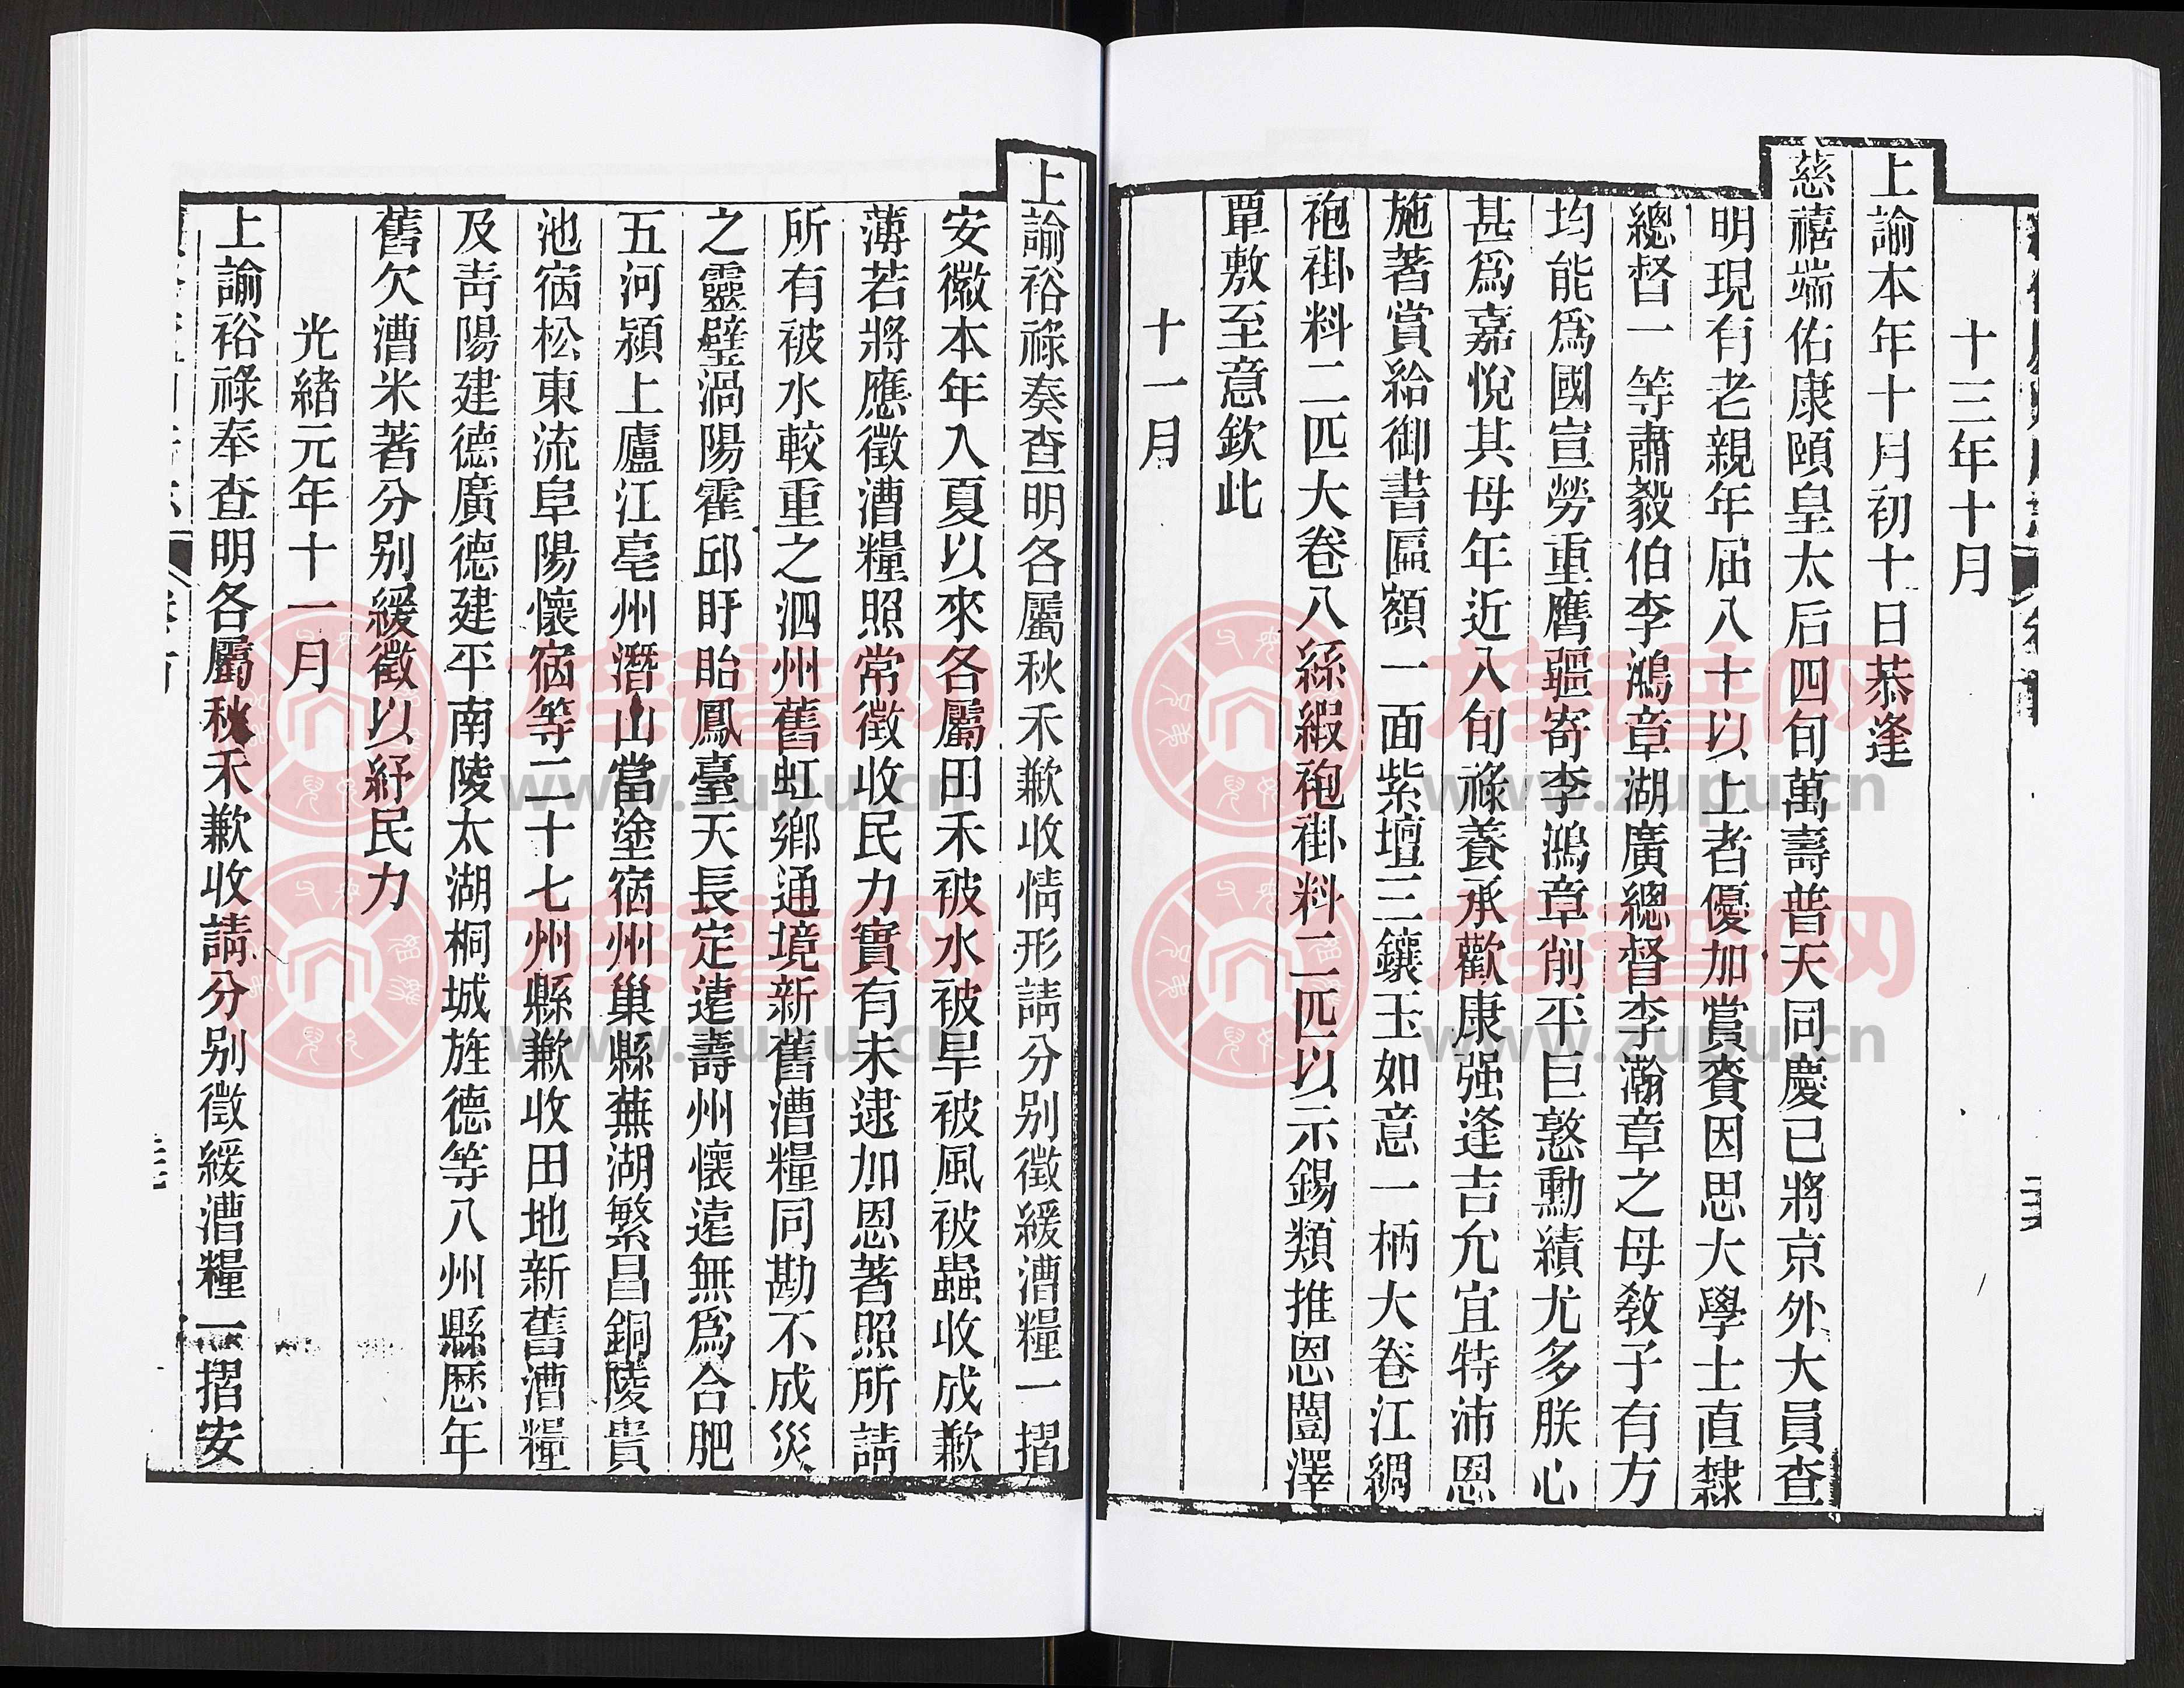 十三年十月
上諭本年十月初十日恭逢
慈禧端佑康頤皇太后四旬萬壽普天同慶已將京外大員查
明現有老親年屆八十以上者優加賞賚因思大學士直隸
總督一等肅毅伯李鴻章湖廣總督李瀚章之母教子有方
均能爲國宣勞重膺疆寄李鴻章削平巨憝勳績尤多朕心
甚爲嘉悅其母年近八旬祿養承歡康强逢吉允宜特沛恩
施著賞給御書匾額一面紫壇三鑲玉如意一柄大卷江綢
袍褂料二匹大卷八絲緞袍褂料二匹以示錫類推恩闓澤
覃敷至意欽此
十一月
上諭裕祿奏查明各屬秋禾歉收情形請分別徵緩漕糧一摺
安徽本年入夏以來各屬田禾被水被旱被風被蟲收成歉
薄若將應徵漕糧照常徵收民力實有未逮加恩著照所請
所有被水較重之泗州舊虹鄉通境新舊漕糧同勘不成災
之靈璧渦陽霍邱盱眙鳳臺天長定遠壽州懷遠無爲合肥
五河潁上廬江亳州潛山當塗宿州巢縣蕪湖繁昌銅陵貴
池宿松東流阜陽懷宿等二十七州縣歉收田地新舊漕糧
及青陽建德廣德建平南陵太湖桐城旌德等八州縣歷年
舊欠漕米著分別緩徵以紓民力
光緒元年十一月
上諭裕祿奉查明各屬秋禾歉收請分別徵緩漕糧一摺安
族譜网
www.zupu.cn
族譜网
www.zupu.cn
族譜网
www.zupu.cn
族譜网
www.zupu.cn